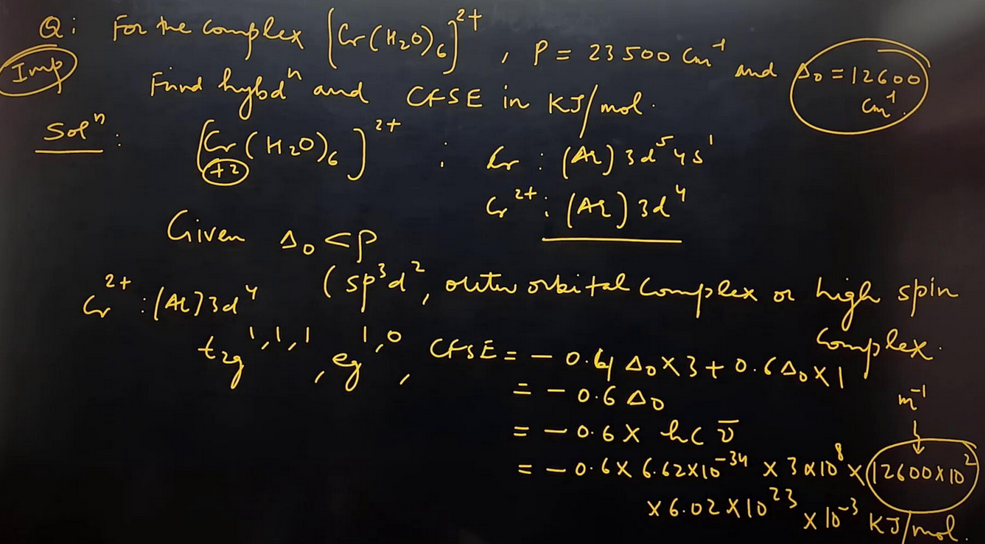 Q: For the complex [Cr(H₂O)₆]²⁺, P = 23500 Cm⁻¹ and Δ₀ = 12600 Cm⁻¹
Imp
Find hybdⁿ and CFSE in KJ/mol.
Solⁿ: [Cr(H₂O)₆]²⁺ : Cr : (Ar) 3d⁵4s¹
+2
Cr²⁺ : (Ar) 3d⁴
Given Δ₀ < P
(sp³d², outer orbital Complex or high spin Complex.
Cr²⁺ : (Ar) 3d⁴
t₂g¹,¹,¹, eg¹,⁰, CFSE = - 0.4 Δ₀ × 3 + 0.6 Δ₀ × 1
= - 0.6 Δ₀
= - 0.6 × hc ν̄
m⁻¹
= - 0.6 × 6.62×10⁻³⁴ × 3×10⁸ × 12600×10²
× 6.02×10²³ × 10⁻³ KJ/mol.